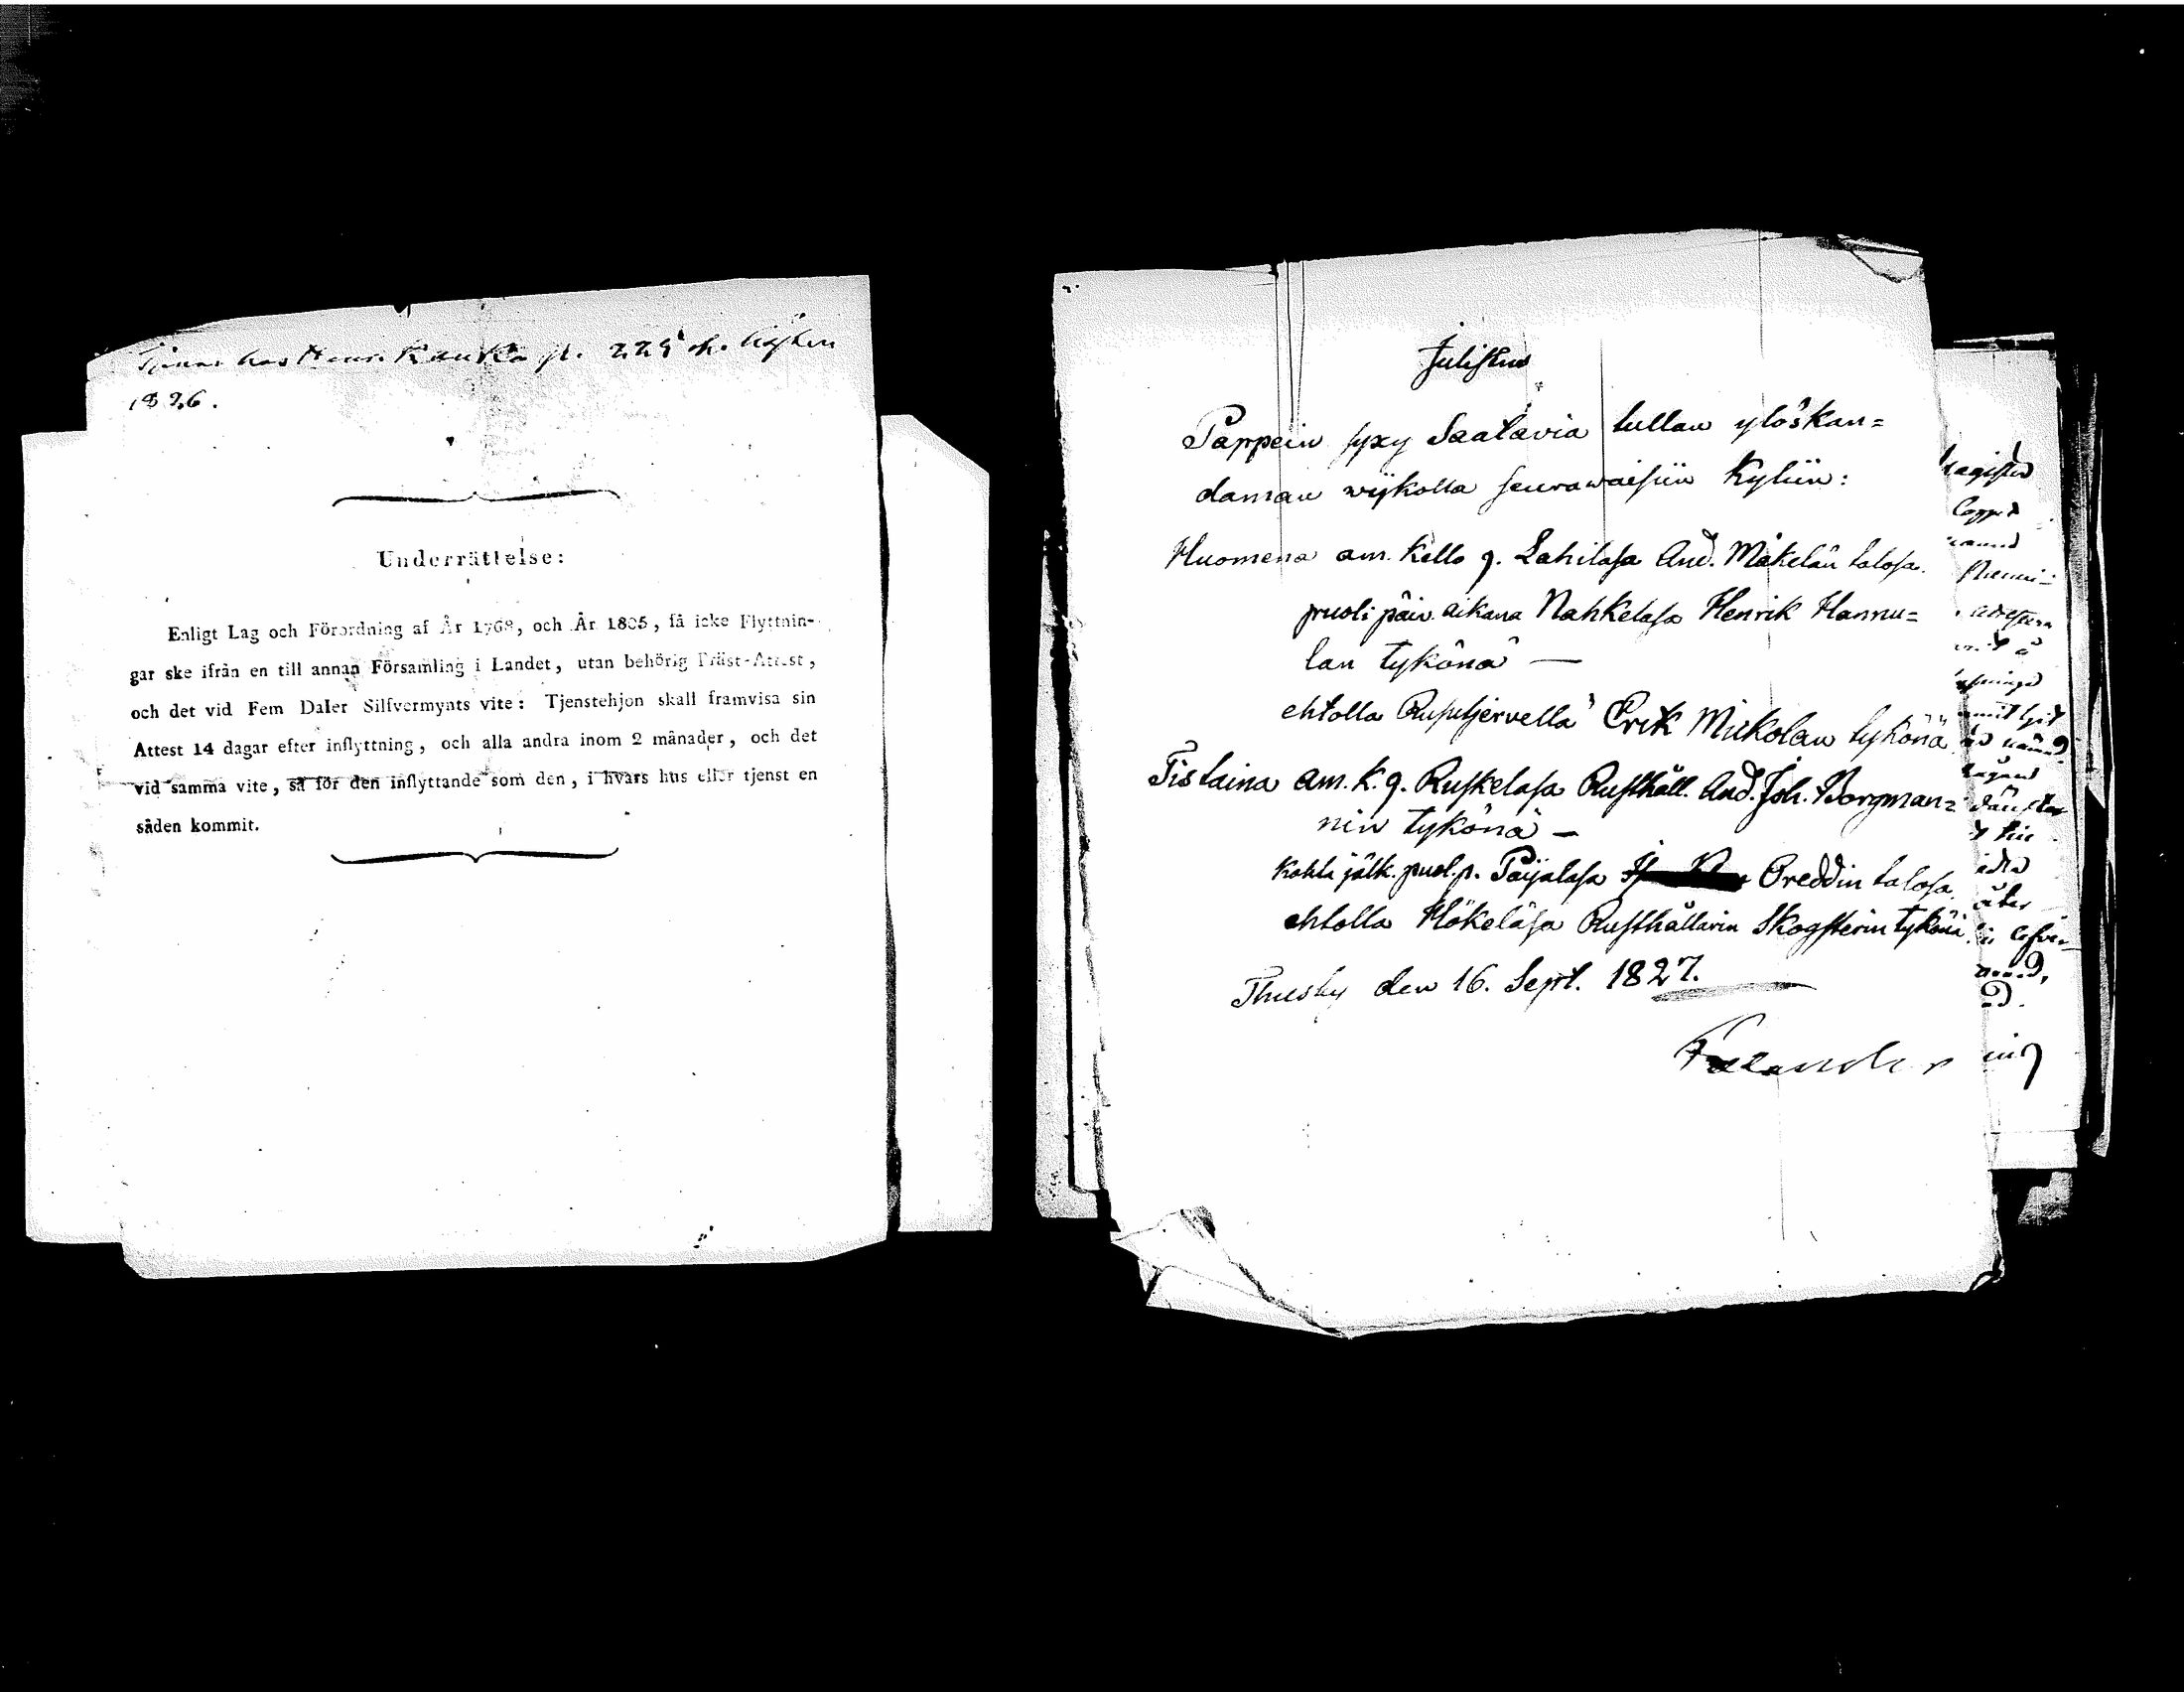 Tjenar hos Henr. Kaukka p. 225 sk. hösten
1826.
Underrättelse:
Enligt Lag och Förordning af År 1768, och År 1805, få icke Flyttnin-
gar ske ifrån en till annan Församling i Landet, utan behörig Präst-Attest,
och det vid Fem Daler Silfvermynts vite: Tjenstehjon skall framvisa sin
Attest 14 dagar efter inflyttning, och alla andra inom 2 månader, och det
vid samma vite, så för den inflyttande som den, i hvars hus eller tjenst en
såden kommit.
Julistus
Pappein syxy Saatavia tullan ylöskan=
daman wijkolla seurawaisiin Kyliin:
Huomena am. Kello 9. Lahilasa And. Mäkelän talosa.
puoli päiv. aikana Nahkelasa Henrik Hannu=
lan tykönä —
ehtolla Rusutjervellä Erik Mickolan tykönä
Tistaina am. K. 9. Ruskelasa Rusthåll. And. Joh. Borgman=
nin tykönä —
Kohta jälk. puol. p. Paijalasa Breddin talosa
ehtolla Hökeläsa Rusthållarin Skogsterin tykönä
Thusby den 16. Sept. 1827.